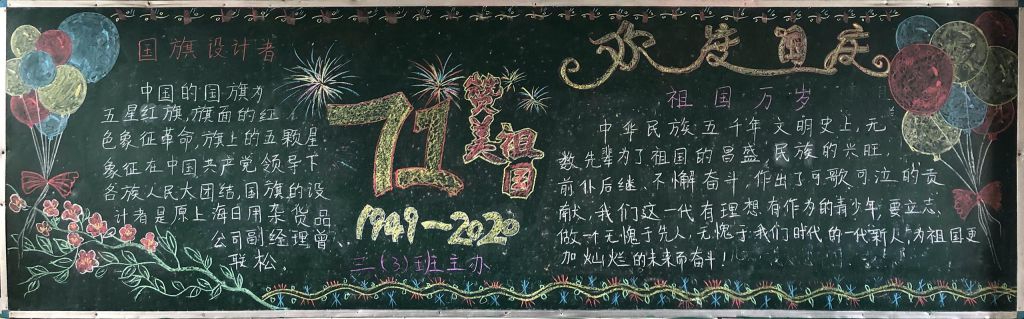 国旗设计者
中国的国旗为
五星红旗,旗面的红
色象征革命,旗上的五颗星
象征在中国共产党领导下
各族人民大团结,国旗的设
计者是原上海日用杂货品
公司副经理曾
联松。
71
赞美祖国
1949—2020
三(3)班主办
欢度国庆
祖国万岁
中华民族五千年文明史上,无
数先辈为了祖国的昌盛,民族的兴旺,
前仆后继,不懈奋斗,作出了可歌可泣的贡
献,我们这一代有理想有作为的青少年,要立志,
做一个无愧于先人,无愧于我们时代的一代新人,为祖国更
加灿烂的未来而奋斗!